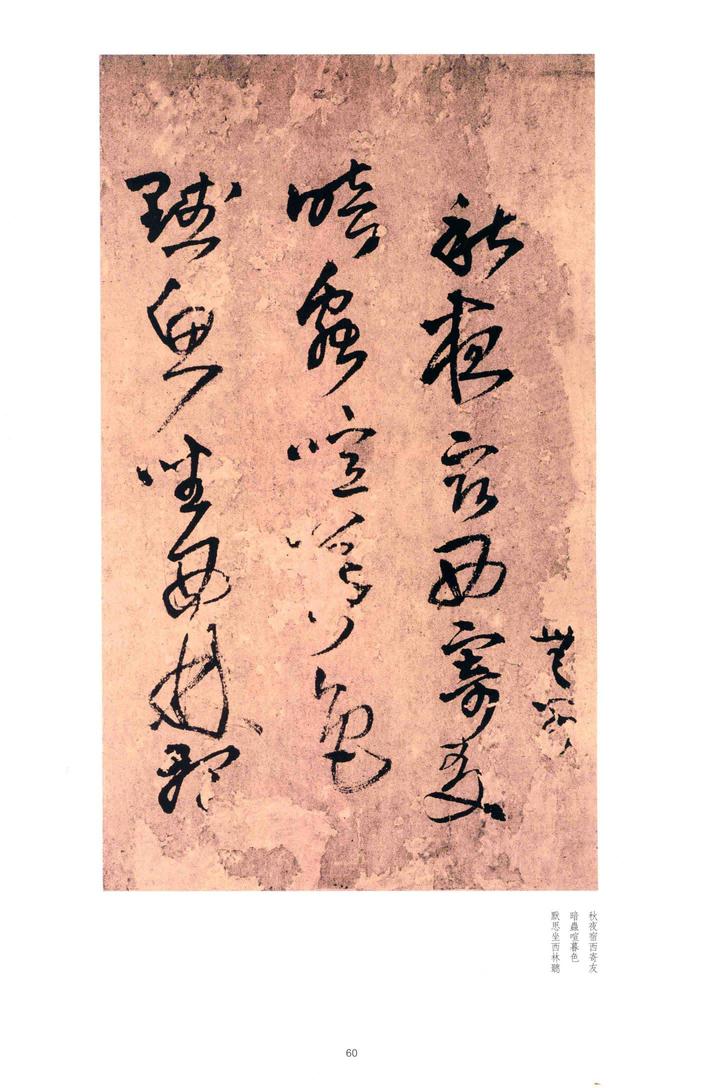 秋夜宿西寄友
暗蟲喧暮色
默思坐西林聽
秋夜宿西寄友
暗蟲喧暮色
默思坐西林聽
60